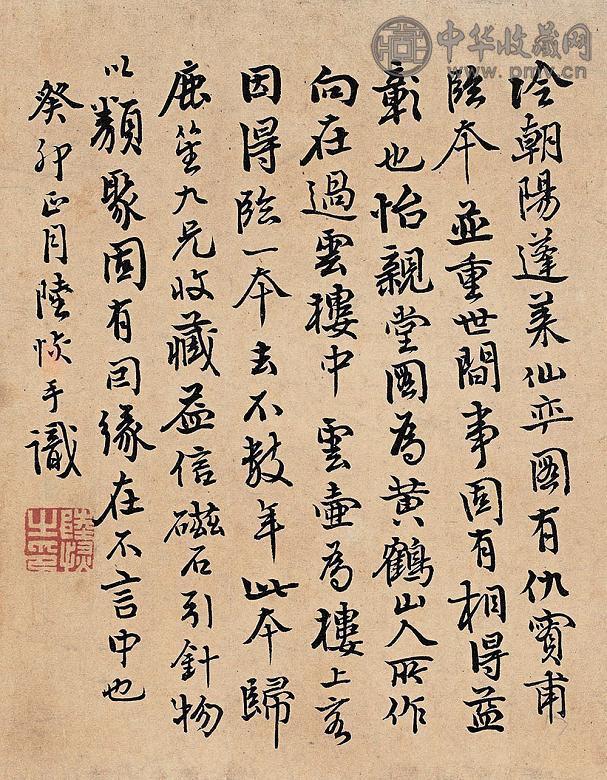 冷朝陽蓬萊仙弈圖有仇實甫
臨本並重世間事固有相得益
彰也怡親堂圖為黃鶴山人所作
向在過雲樓中雲壺為樓上客
因得臨一本去不數年此本歸
鹿笙九兄收藏益信磁石引針物
以類聚固有因緣在不言中也
癸卯正月陸恢手識
陸恢之印
中华收藏网
www.pmix.cn